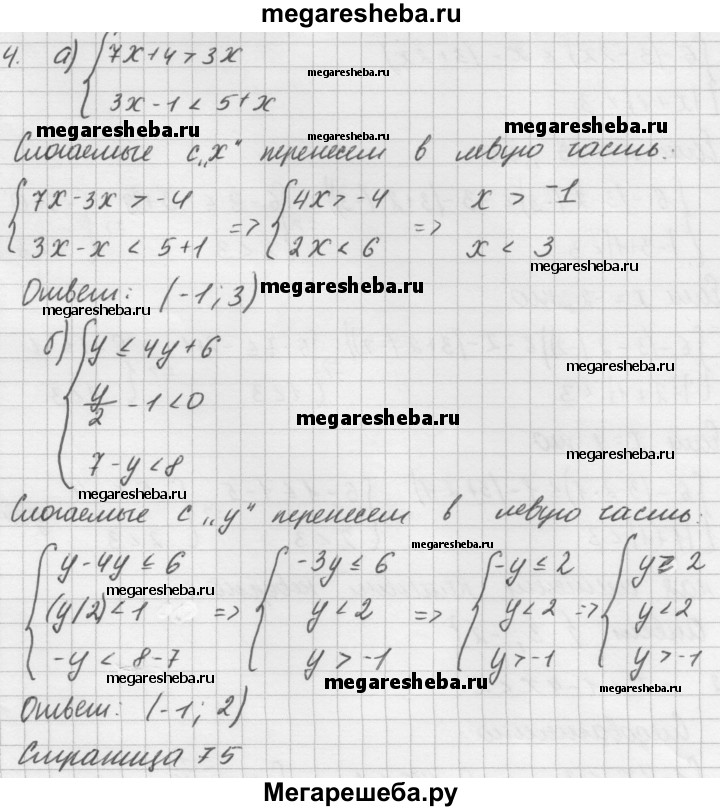 megaresheba.ru
4. а) { 7x+4 > 3x
megaresheba.ru
3x-1 < 5+x
megaresheba.ru megaresheba.ru megaresheba.ru
Слагаемые с „x“ перенесем в левую часть:
{ 7x-3x > -4 => { 4x > -4 => x > -1
3x-x < 5+1 2x < 6 x < 3
megaresheba.ru
Ответ: (-1; 3)
megaresheba.ru megaresheba.ru
б) { y ≤ 4y+6
megaresheba.ru
y/2 - 1 < 0
megaresheba.ru
megaresheba.ru
7-y < 8
megaresheba.ru
Слагаемые с „y“ перенесем в левую часть:
megaresheba.ru
{ y-4y ≤ 6 { -3y ≤ 6 { -y ≤ 2 { y ≥ 2
megaresheba.ru
(y/2) < 1 => y < 2 => y < 2 => y < 2
-y < 8-7 y > -1 y > -1 y > -1
megaresheba.ru megaresheba.ru megaresheba.ru
Ответ: (-1; 2)
Страница 75
Мегарешеба.ру